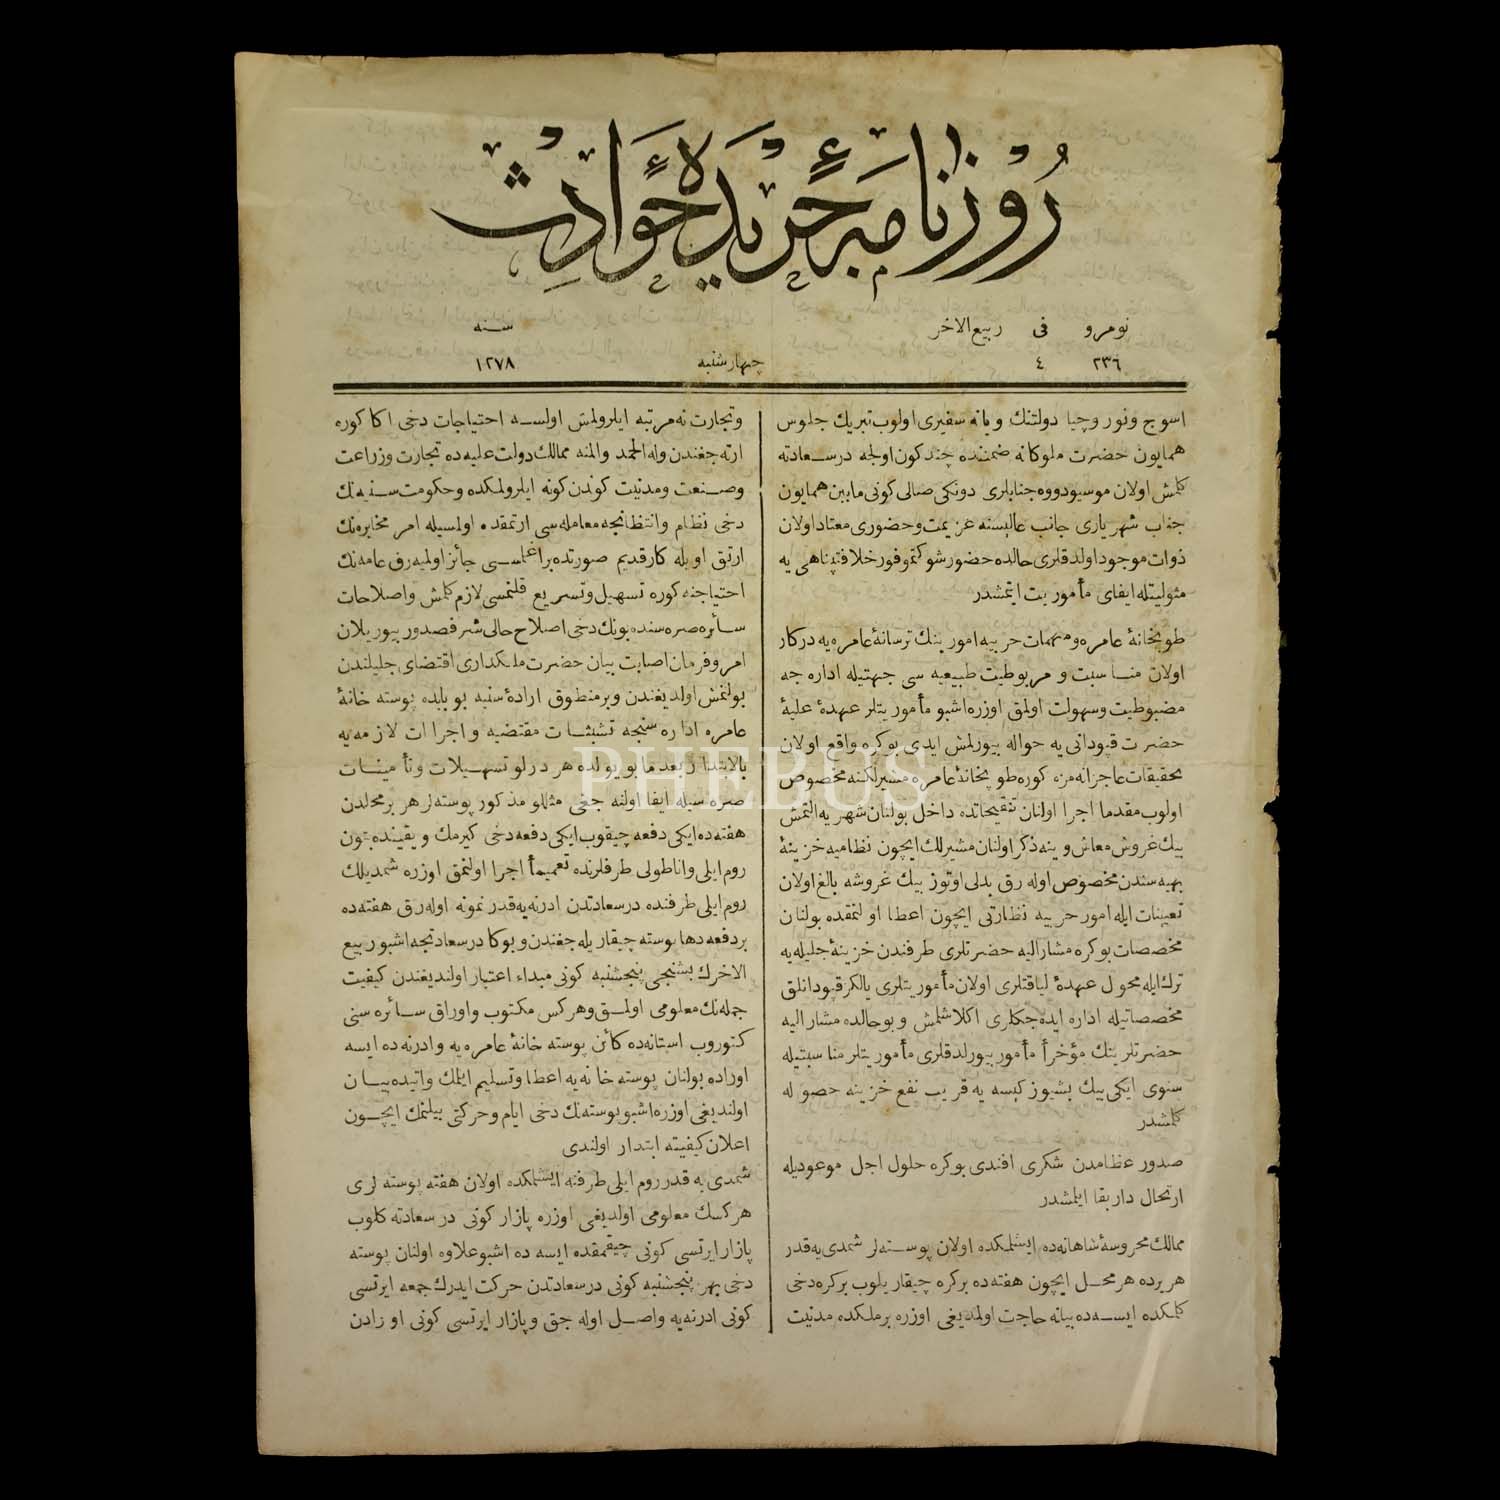 روزنامهٔ جریدهٔ حوادث
نومرو فی ربیع الاخر سنه
٢٣٦ ٤ چهارشنبه ١٢٧٨
اسوج ونور وچیا دولتنك ویانه سفیری اولوب تبریك جلوس
همایون حضرت ملوکانه ضمننده چند کون اولجه درسعادته
کلمش اولان موسیو دووه جنابلری دونکی صالی کونی مابین همایون
جناب شهریاری جانب عالیسنه عزیمت وحضوری معتاد اولان
ذوات موجود اولدقلری حالده حضور شوکتموفور خلافتپناهی یه
مثولیتله ایفای مأموریت ایتمشدر
طوپخانهٔ عامره ومهمات حربیه امورینك ترسانهٔ عامره یه درکار
اولان مناسبت و مربوطیت طبیعیه سی جهتیله اداره جه
مضبوطیت وسهولت اولمق اوزره اشبو مأموریتلر عهدهٔ علیهٔ
حضرت قپودانی یه حواله بیورلمش ایدی بوکره واقع اولان
تحقیقات عاجزانه مزه کوره طوپخانهٔ عامره مشیرلکنه مخصوص
اولوب مقدما اجرا اولنان تنقیحاتده داخل بولنان شهریه التمش
بیك غروش معاش وینه ذکر اولنان مشیرلك ایچون نظامیه خزینهٔ
بهیه سندن مخصوص اوله رق بدلی اوتوز بیك غروشه بالغ اولان
تعیینات ایله امور حربیه نظارتی ایچون اعطا اولنمقده بولنان
مخصصات بوکره مشارالیه حضرتلری طرفندن خزینهٔ جلیله یه
ترك ایله محول عهدهٔ لیاقتلری اولان مأموریتلری یالکز قپودانلق
مخصصاتیله اداره ایده جکلری اکلاشلمش و بوحالده مشارالیه
حضرتلرینك مؤخراً مأمور بیورلدقلری مأموریتلر مناسبتیله
سنوی ایکی بیك بشیوز کیسه یه قریب نفع خزینه حصوله
کلمشدر
صدور عظامدن شکری افندی بوکره حلول اجل موعودیله
ارتحال دار بقا ایلمشدر
ممالك محروسهٔ شاهانه ده ایشلمکده اولان پوسته لر شمدی یه قدر
هر یرده هر محل ایچون هفته ده برکره چیقاریلوب برکره دخی
کلمکده ایسه ده بیانه حاجت اولمدیغی اوزره بر ملکده مدنیت
وتجارت نه مرتبه ایلرولمش اولسه احتیاجات دخی اکا کوره
ارته جغندن وله الحمد والمنه ممالك دولت علیه ده تجارت وزراعت
وصنعت ومدنیت کوندن کونه ایلرولمکده وحکومت سنیه نك
دخی نظام وانتظامجه معامله سی ارتمقده اولمسیله امر مخابره نك
ارتق اویله کار قدیم صورتده براغلمسی جائز اولمیه رق عامه نك
احتیاجنه کوره تسهیل وتسریع قلنمسی لازم کلمش واصلاحات
سائره صره سنده بونك دخی اصلاح حالی شرفصدور بیوریلان
امر وفرمان اصابت بیان حضرت ملکداری اقتضای جلیلندن
بولنمش اولدیغندن وبر منطوق ارادهٔ سنیه بو بابده پوسته خانهٔ
عامره اداره سنجه تشبثات مقتضیه واجراات لازمه یه
بالابتدار بعدما بو یولده هر درلو تسهیلات وتأمینات
صره سیله ایفا اولنه جغی مثللو مذکور پوسته لر هر بر محلدن
هفته ده ایکی دفعه چیقوب ایکی دفعه دخی کیرمك و یقینده بتون
روم ایلی واناطولی طرفلرنده تعمیماً اجرا اولنمق اوزره شمدیلك
روم ایلی طرفنده درسعادتدن ادرنه یه قدر نمونه اوله رق هفته ده
بر دفعه دها پوسته چیقاریله جغندن و بوکا درسعادتجه اشبو ربیع
الاخرك بشنجی پنجشنبه کونی مبداء اعتبار اولندیغندن کیفیت
جمله نك معلومی اولمق وهرکس مکتوب واوراق سائره سنی
کتوروب استانه ده کائن پوسته خانهٔ عامره یه وادرنه ده ایسه
اوراده بولنان پوسته خانه یه اعطا وتسلیم ایلمك واتیده بیان
اولندیغی اوزره اشبو پوسته نك دخی ایام وحرکتی بیلنمك ایچون
اعلان کیفیته ابتدار اولندی
شمدی یه قدر روم ایلی طرفنه ایشلمکده اولان هفته پوسته لری
هرکسك معلومی اولدیغی اوزره پازار کونی درسعادته کلوب
پازارایرتسی کونی چیقمقده ایسه ده اشبو علاوه اولنان پوسته
دخی بهر پنجشنبه کونی درسعادتدن حرکت ایدرك جمعه ایرتسی
کونی ادرنه یه واصل اوله جق وپازارایرتسی کونی اورادن
PHEBUS